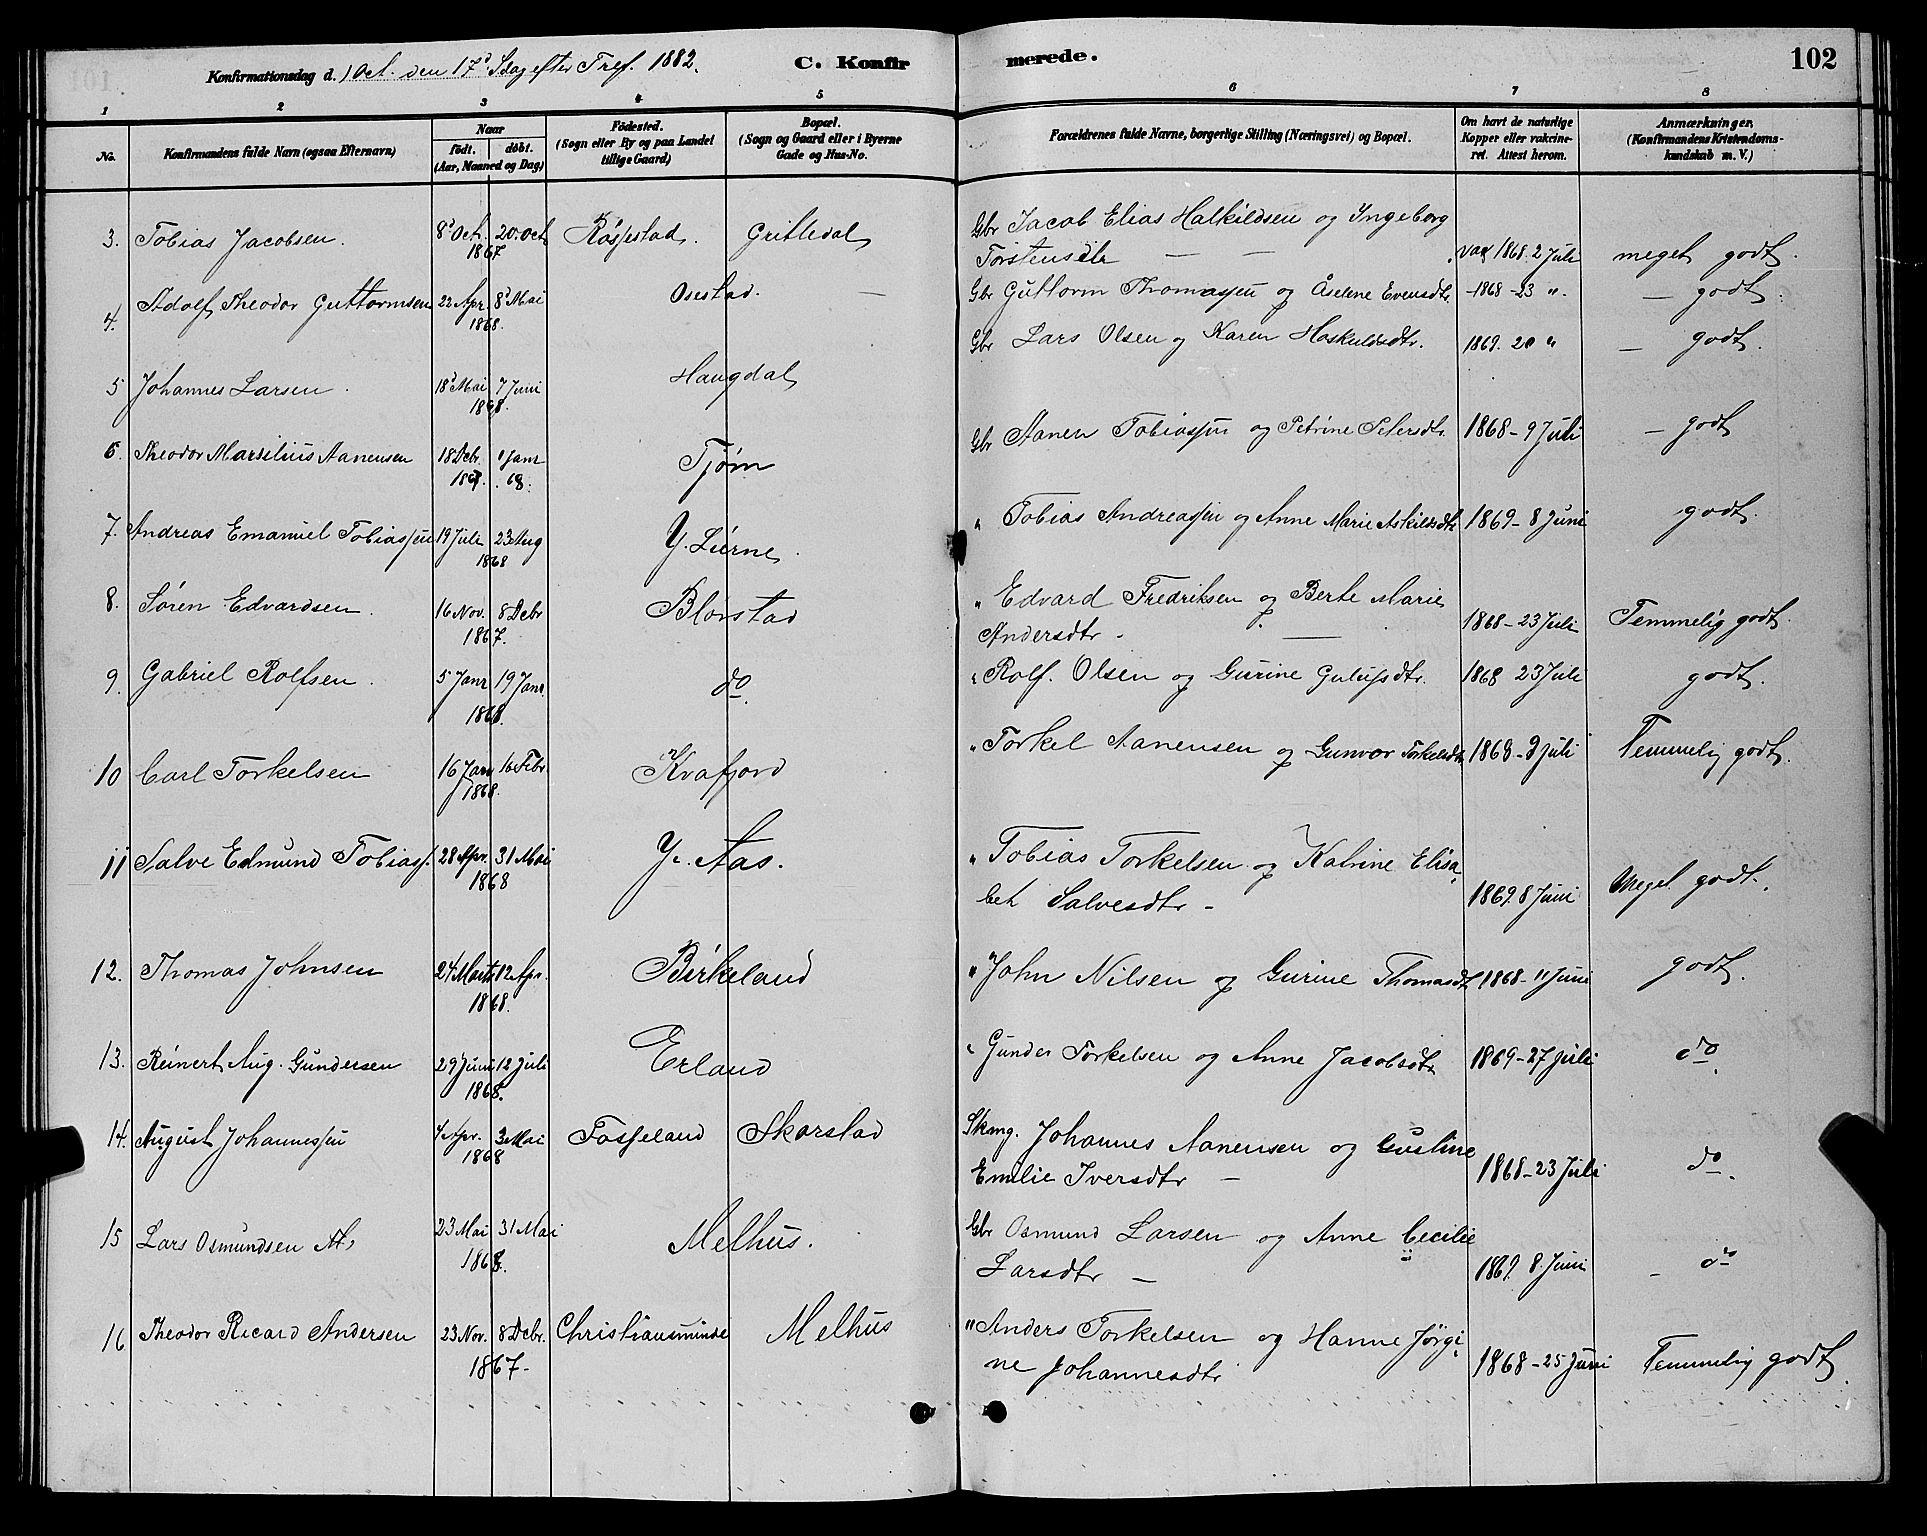 Konfirmationsdag d. 1 Oct. den 17d Sdag efter Tref. 1882.
C. Konfirmerede.
102
1 2 3 4 5 6 7 8
No.
Konfirmandens fulde Navn (ogsaa Efternavn)
Naar
født. døbt.
(Aar, Maaned og Dag)
Fødested.
(Sogn eller By og paa Landet
tillige Gaard)
Bopæl.
(Sogn og Gaard eller i Byerne
Gade og Hus-No.
Forældrenes fulde Navne, borgerlige Stilling (Næringsvei) og Bopæl.
Om havt de naturlige
Kopper eller vakcine-
ret. Attest herom.
Anmærkninger.
(Konfirmandens Kristendoms-
kundskab m. V.)
3. Tobias Jacobsen. 8d Oct. 20. Oct 1867 Røssestad. Gritledal Gbr Jacob Elias Halkildsen og Ingeborg
Torstensdtr — — vax 1868. 2 Juli meget godt.
4. Adolf Theodor Guttormsen 22 Apr. 8d Mai 1868. Osestad. — Gbr Guttorm Thomassen og Aselene Evensdtr. -1868-23 ". — godt.
5 Johannes Larsen. 18d Mai 7 Juni 1868. Haugdal Gbr Lars Olsen og Karen Haskuldsdtr. 1869. 20 " — godt.
6. Theodor Marsilius Aanensen 18 Debr. 1867. 1 Janr 68. Tjøm Gbr Aanen Tobiassen og Petrine Petersdtr 1868-9 Juli — godt
7. Andreas Emanuel Tobiassen 19 Juli 23 Aug 1868 Y. Lierne. " Tobias Andreassen og Anne Marie Askildsdtr 1869-8 Juni godt.
8. Søren Edvardsen. 16 Nov. 8 Debr 1867. Blørstad " Edvard Fredriksen og Berte Marie
Andersdtr. — 1868-23 Juli Temmelig godt.
9. Gabriel Rolfsen. 5 Janr 19 Janr. 1868. do " Rolf. Olsen og Gurine Gulufsdtr. 1868 23 Juli godt.
10 Carl Torkelsen 16 Janr 16 Febr. 1868. Kvafjord " Torkel Aanensen og Gunvor Torkelsdtr 1868-9 Juli Temmelig godt.
11 Salve Edmund Tobiass. 28 Apr. 31 Mai 1868 Y. Aas. " Tobias Torkelsen og Katrine Elisa-
bet Salvesdtr - 1869. 8 Juni Meget godt.
12. Thomas Johnsen 24 Marts 12 Apr. 1868. Birkeland " John Nilsen og Gurine Thomasdtr 1868-11 Juni godt.
13. Reinert Aug. Gundersen 29 Juni 12 Juli 1868. Erland " Gunder Torkelsen og Anne Jacobsdtr 1869-27 Juli do.
14. August Johannessen 4 Apr. 3 Mai 1868 Fosseland Skarstad Skmg. Johannes Aanensen og Gustine
Emilie Iversdtr — 1868-23 Juli do.
15 Lars Osmundsen 23 Mai 31 Mai 1868. Melhus. Gbr Osmund Larsen og Anne Cecilie
Larsdtr — 1869. 8 Juni — do
16 Theodor Ricard Andersen 23 Nov. 8 Debr. 1867. Christiansminde Melhus " Anders Torkelsen og Hanne Jørgi-
ne Johannesdtr 1868-25 Juni Temmelig godt.